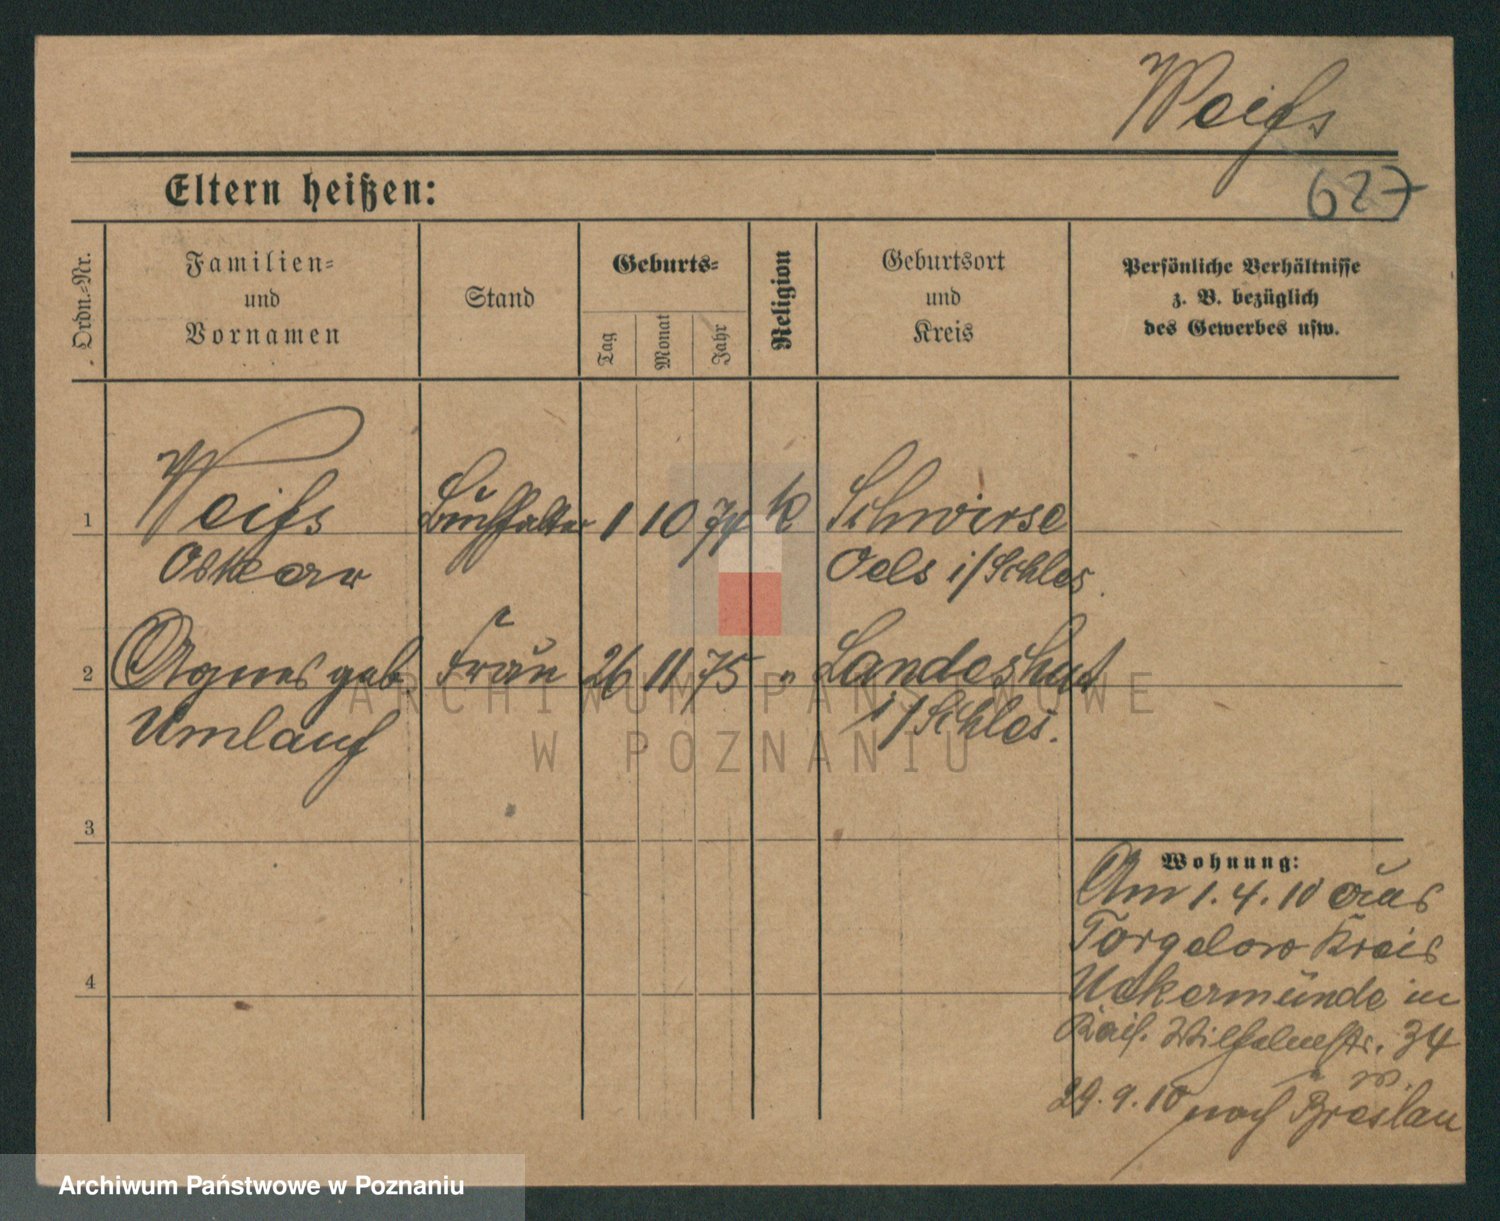 Weiß
627
Eltern heißen:
Ordn.-Nr.
Familien-
und
Vornamen
Stand
Geburts-
Tag
Monat
Jahr
Religion
Geburtsort
und
Kreis
Persönliche Verhältnisse
z. B. bezüglich
des Gewerbes usw.
1 Weiß Buchhalter 1 10 74 k Schwirse
Oskar Oels i/Schles.
2 Agnes geb. Frau 26 11 75 " Landeshut
Umlauf i/Schles.
3
4
Wohnung:
Am 1.4.10 aus
Torgelow Kreis
Uekermünde in
Kais. Wilhelmstr. 34
29.9.10 nach Breslau
ARCHIWUM PAŃSTWOWE
W POZNANIU
Archiwum Państwowe w Poznaniu